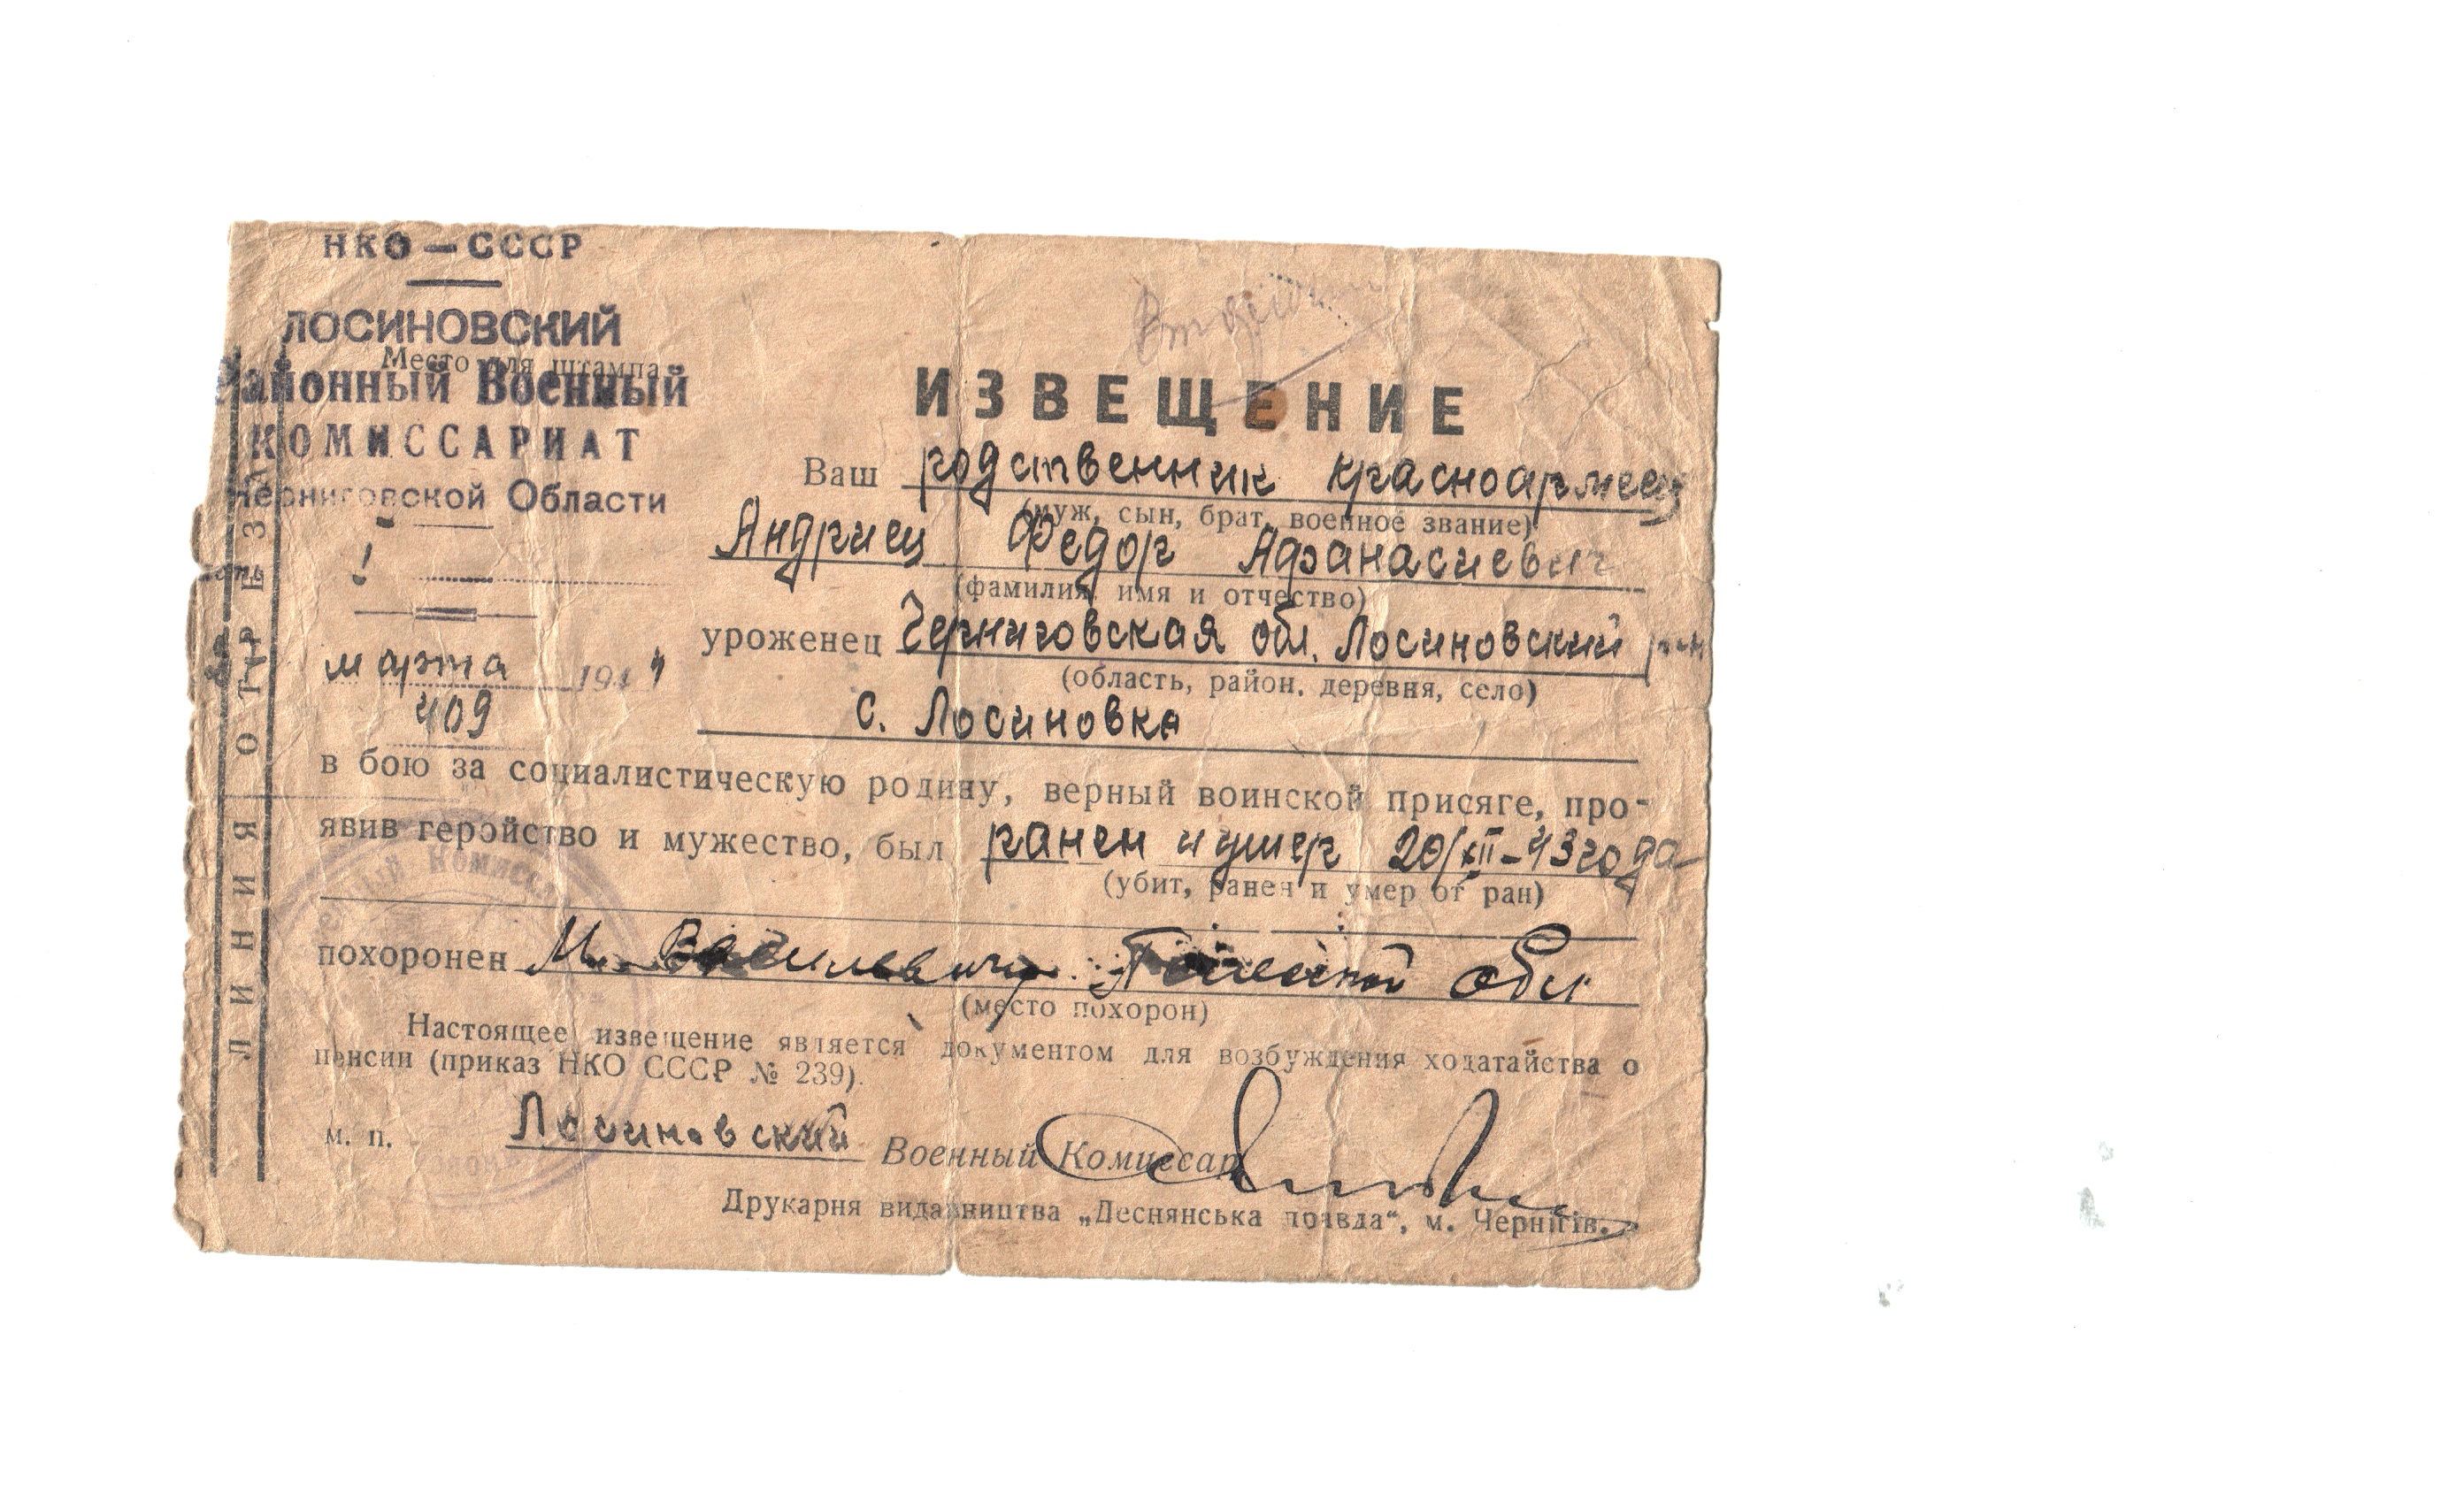 НКО — СССР
ЛОСИНОВСКИЙ
Место для штампа
Районный Военный
КОМИССАРИАТ
Черниговской Области
марта 1944
409
ЛИНИЯ ОТРЕЗА
ИЗВЕЩЕНИЕ
Ваш родственник красноармеец
(муж, сын, брат, военное звание)
Андриец Федор Афанасиевич
(фамилия, имя и отчество)
уроженец Черниговская обл. Лосиновский р-н
(область, район, деревня, село)
с. Лосиновка
в бою за социалистическую родину, верный воинской присяге, про-
явив геройство и мужество, был ранен и умер 20/XII-43 года
(убит, ранен и умер от ран)
похоронен М. Василевичи обл
(место похорон)
Настоящее извещение является документом для возбуждения ходатайства о
пенсии (приказ НКО СССР № 239).
м. п. Лосиновский Военный Комиссар
Друкарня видавництва „Деснянська правда“, м. Чернігів.